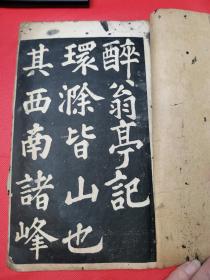 醉翁亭記
環滁皆山也
其西南諸峰